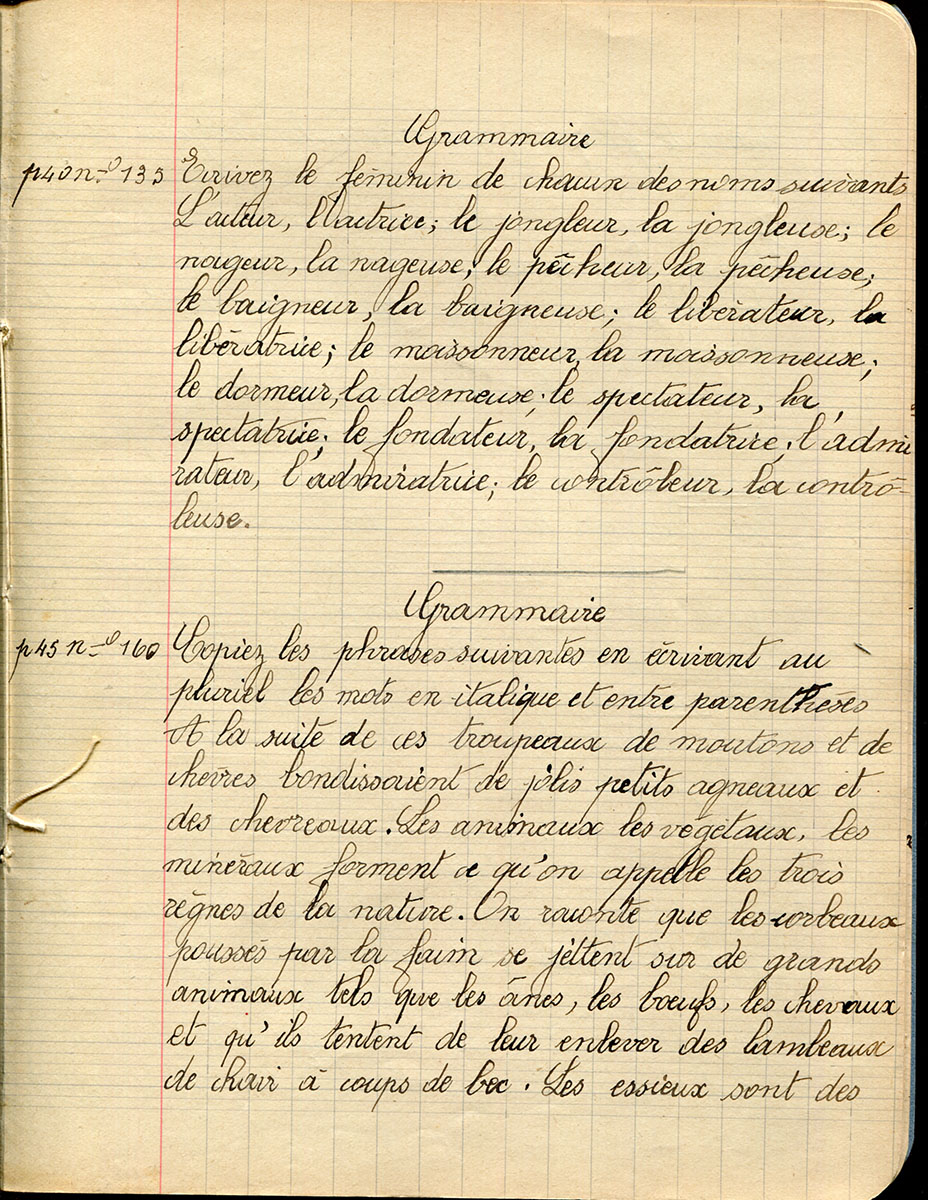 Grammaire
p40 n-o 135 Ecrivez le féminin de chacun des noms suivants
L'acteur, l'actrice; le jongleur, la jongleuse; le
nageur, la nageuse; le pêcheur, la pêcheuse;
le baigneur, la baigneuse; le libérateur, la
libératrice; le moissonneur, la moissonneuse;
le dormeur, la dormeuse; le spectateur, la
spectatrice; le fondateur, la fondatrice; l'admi
rateur, l'admiratrice; le contrôleur, la contrô-
leuse.
Grammaire
p45 n-o 160 Copiez les phrases suivantes en écrivant au
pluriel les mots en italique et entre parenthèses
A la suite de ces troupeaux de moutons et de
chèvres bondissaient de jolis petits agneaux et
des chevreaux. Les animaux les végétaux, les
minéraux forment ce qu'on appelle les trois
règnes de la nature. On raconte que les corbeaux
poussés par la faim se jettent sur de grands
animaux tels que les ânes, les bœufs, les chevaux
et qu'ils tentent de leur enlever des lambeaux
de chair à coups de bec. Les essieux sont des